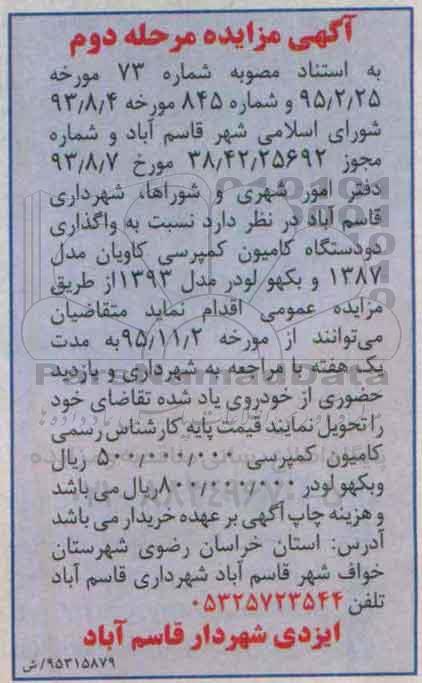 آگهی مزایده مرحله دوم
به استناد مصوبه شماره ۷۳ مورخه
۹۵/۲/۲۵ و شماره ۸۴۵ مورخه ۹۳/۸/۴
شورای اسلامی شهر قاسم آباد و شماره
مجوز ۳۸/۴۲/۲۵۶۹۲ مورخ ۹۳/۸/۷
دفتر امور شهری و شوراها، شهرداری
قاسم آباد در نظر دارد نسبت به واگذاری
دودستگاه کامیون کمپرسی کاویان مدل
۱۳۸۷ و بکهو لودر مدل ۱۳۹۳از طریق
مزایده عمومی اقدام نماید متقاضیان
می‌توانند از مورخه ۹۵/۱۱/۲به مدت
یک هفته با مراجعه به شهرداری و بازدید
حضوری از خودروی یاد شده تقاضای خود
را تحویل نمایند قیمت پایه کارشناس رسمی
کامیون کمپرسی ۵۰۰/۰۰۰/۰۰۰ ریال
وبکهو لودر ۸۰۰/۰۰۰/۰۰۰ریال می باشد
و هزینه چاپ آگهی بر عهده خریدار می باشد
آدرس: استان خراسان رضوی شهرستان
خواف شهر قاسم آباد شهرداری قاسم آباد
تلفن ۰۵۳۲۵۷۲۳۵۴۴
ایزدی شهردار قاسم آباد
۹۵۳۱۵۸۷۹/ش
ParsNamadData